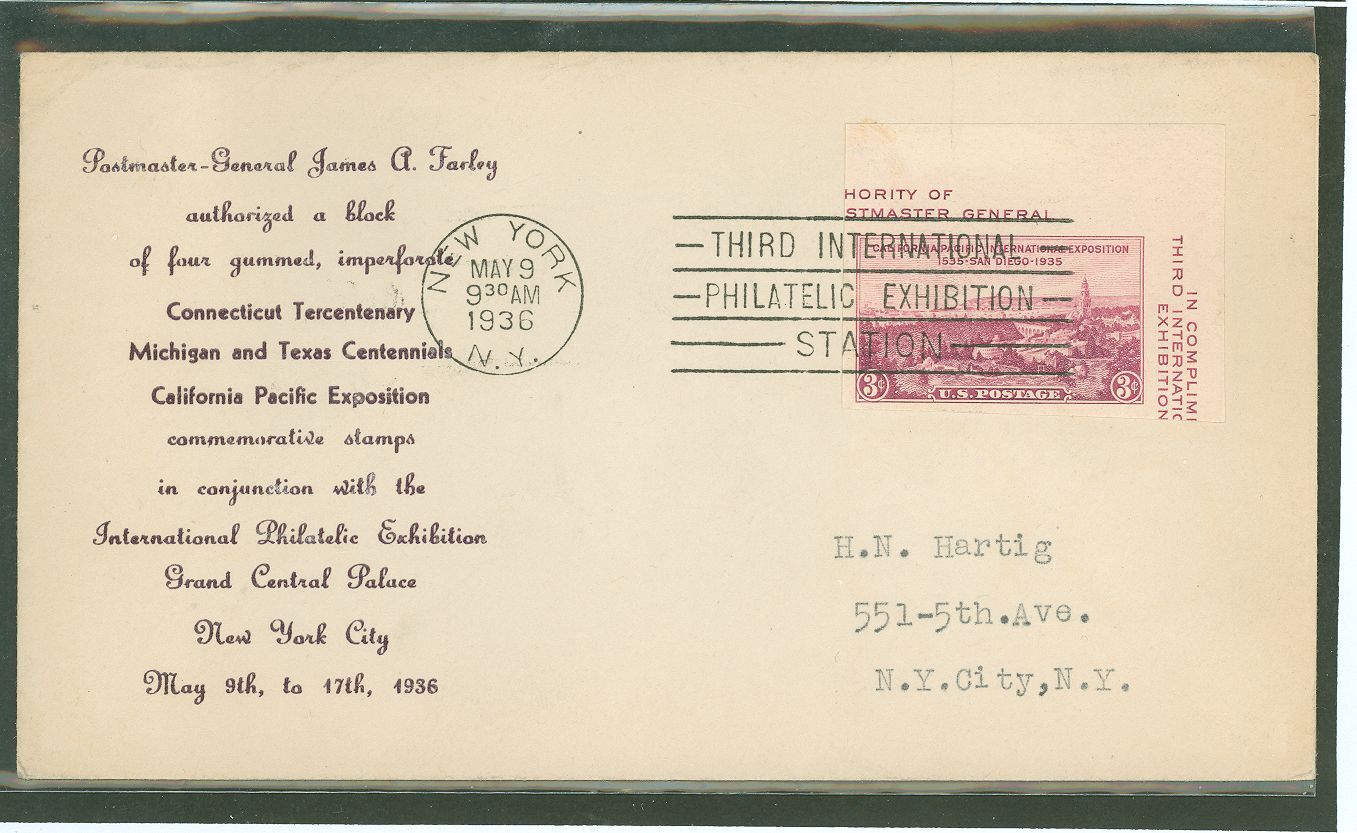 Postmaster-General James A. Farley
authorized a block
of four gummed, imperforate
Connecticut Tercentenary
Michigan and Texas Centennials
California Pacific Exposition
commemorative stamps
in conjunction with the
International Philatelic Exhibition
Grand Central Palace
New York City
May 9th, to 17th, 1936
NEW YORK
MAY 9
9 30 AM
1936
N.Y.
THIRD INTERNATIONAL
PHILATELIC EXHIBITION
STATION
HORITY OF
STMASTER GENERAL
CALIFORNIA PACIFIC INTERNATIONAL EXPOSITION
1535·SAN DIEGO·1935
3¢ U.S. POSTAGE 3¢
IN COMPLIM
THIRD INTERNATIO
EXHIBITION
H.N. Hartig
551-5th.Ave.
N.Y.City,N.Y.